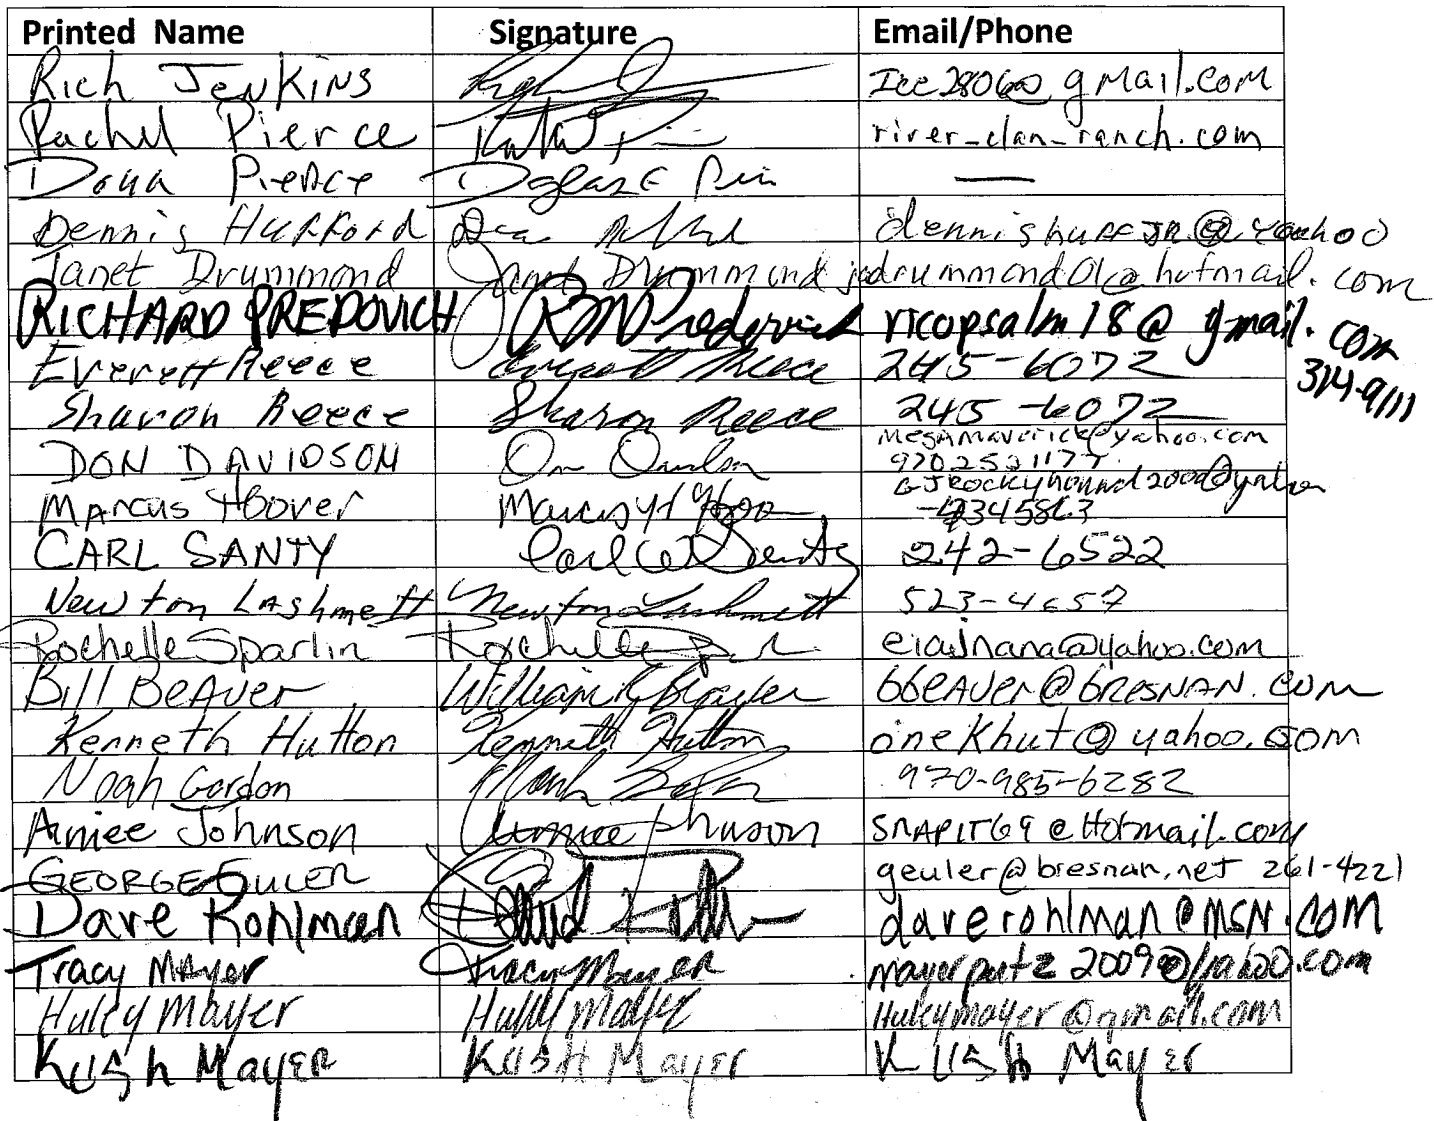 Printed Name Signature Email/Phone
Rich Jenkins gmail.com
Rachel Pierce river-clan-ranch.com
Doug Pierce —
Dennis Hufford dennishuffJR@yahoo
Janet Drummond Janet Drummond jadrummond01@hotmail.com
RICHARD PREDOVICH ricopsalm18@gmail.com
314-9111
Everett Reece Everett Reece 245-6072
Sharon Reece Sharon Reece 245-6072
DON DAVIDSON megamaverick@yahoo.com
9702521177
Marcus Hoover GJrockyhound2000@yahoo
CARL SANTY Carl W Santy 242-6522
Newton Lashmett Newton Lashmett 523-4657
Rochelle Sparlin Rochelle
Bill Beaver William R Beaver bbeaver@bresnan.com
Kenneth Hutton Kenneth Hutton onekhut@yahoo.com
Noah Gordon Noah 970-985-6282
Aimee Johnson Aimee Johnson SNAPIT69@Hotmail.com
GEORGE EULER geuler@bresnan.net 261-4221
Dave Rohlman David daverohlman@MSN.COM
Tracy Mayer Tracy Mayer mayerputz2009@yahoo.com
Huley Mayer Huley Mayer Huleymayer@gmail.com
Kush Mayer Kush Mayer Kush Mayer